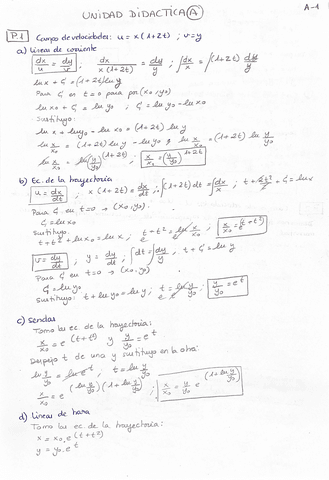 UNIDAD DIDACTICA A
A-1
P.1 Campo de velocidades: u = x(1+2t) ; v = y
a) Líneas de corriente
dx/u = dy/v ; dx/x(1+2t) = dy/y ; ∫dx/x = ∫(1+2t) dy/y
ln x + C₁ = (1+2t) ln y
Para C₁ en t=0 para por (x₀, y₀)
ln x₀ + C₁ = ln y₀ ; C₁ = ln y₀ - ln x₀
Sustituyo:
ln x + ln y₀ - ln x₀ = (1+2t) ln y
ln x/x₀ = (1+2t) ln y - ln y₀ ; ln x/x₀ = (1+2t) ln y/y₀
ln x/x₀ = ln (y/y₀)^(1+2t) ; x/x₀ = (y/y₀)^(1+2t)
b) Ec. de la trayectoria
u = dx/dt ; x(1+2t) = dx/dt ; ∫(1+2t) dt = ∫dx/x ; t + t² + C₁ = ln x
Para C₁ en t=0 → (x₀, y₀).
C₁ = ln x₀
Sustituyo:
t + t² + ln x₀ = ln x ; t + t² = ln x/x₀ ; x/x₀ = e^(t+t²)
v = dy/dt ; y = dy/dt ; ∫dt = ∫dy/y ; t + C₁ = ln y
Para C₁ en t=0 → (x₀, y₀)
C₁ = ln y₀
Sustituyo: t + ln y₀ = ln y ; t = ln y/y₀ ; y/y₀ = e^t
c) Sendas
Tomo las ec. de la trayectoria:
x/x₀ = e^(t+t²) y y/y₀ = e^t
Despejo t de una y sustituyo en la otra:
ln y/y₀ = ln e^t ; t = ln y/y₀
x/x₀ = e^(ln y/y₀)(1+ln y/y₀) ; x/x₀ = y/y₀ e^(1+ln y/y₀)
d) Líneas de traza
Tomo las ec. de la trayectoria:
x = x₀.e^(t+t²)
y = y₀.e^t